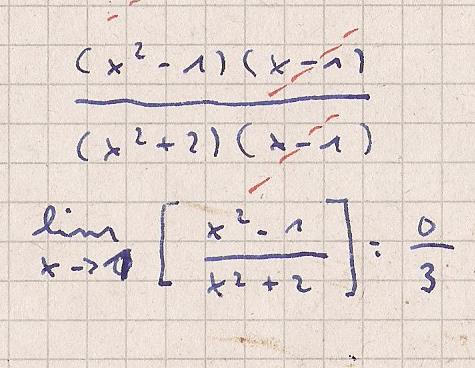 (x² - 1) (x - 1)
(x² + 2) (x - 1)
lim x → 1 [ x² - 1 / x² + 2 ] = 0 / 3